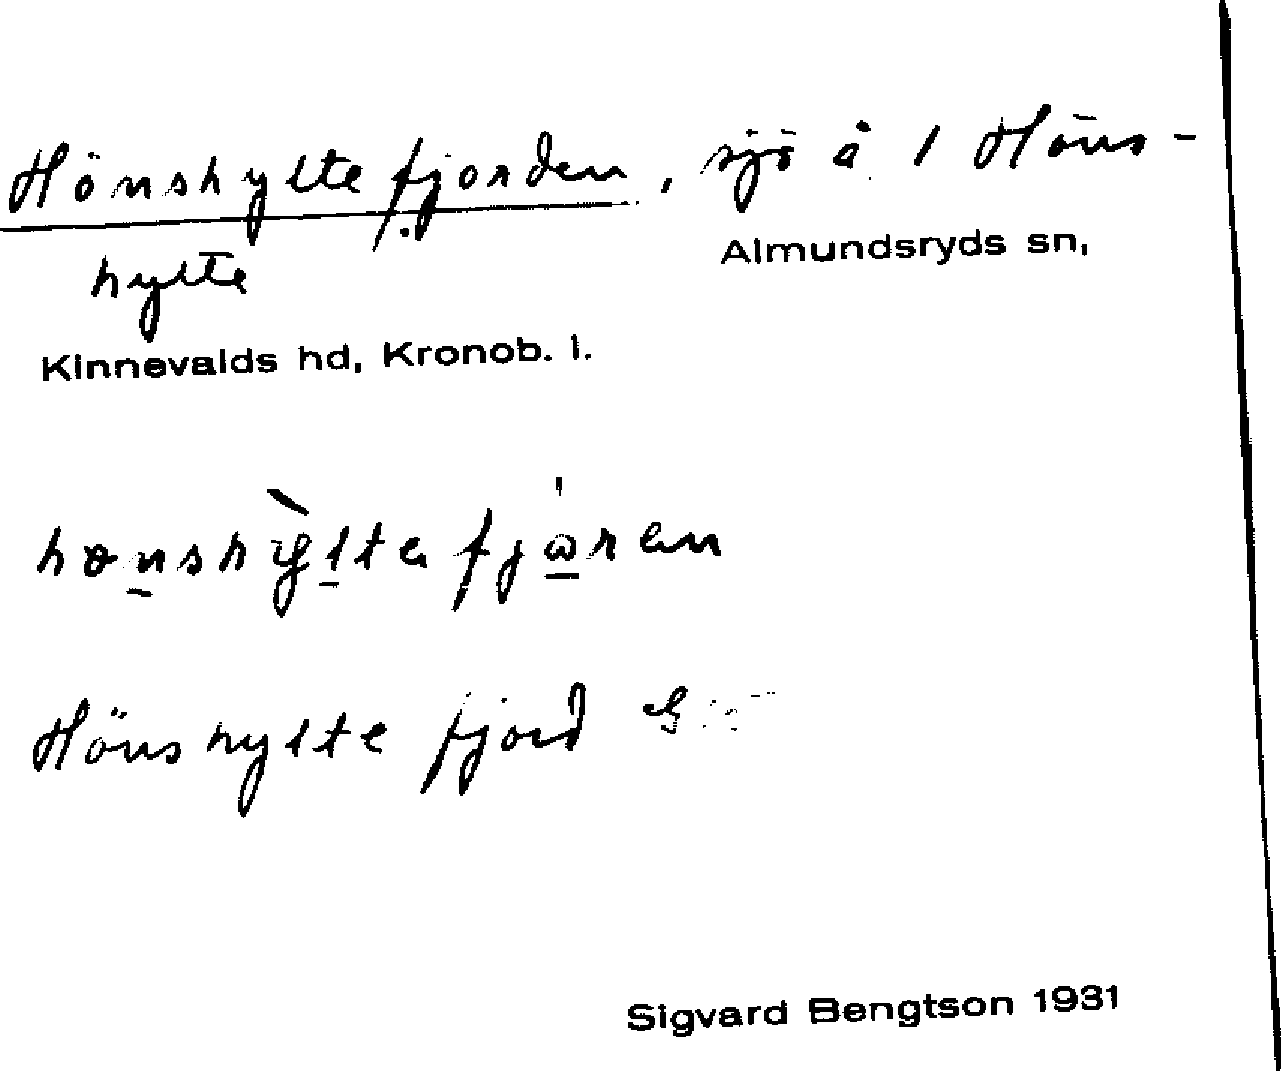 Hönshyltefjorden, sjö å 1 Höns-
Almundsryds sn,
hylte
Kinnevalds hd, Kronob. l.
hønshỳltefjωren
Hönshylte fjord
Sigvard Bengtson 1931